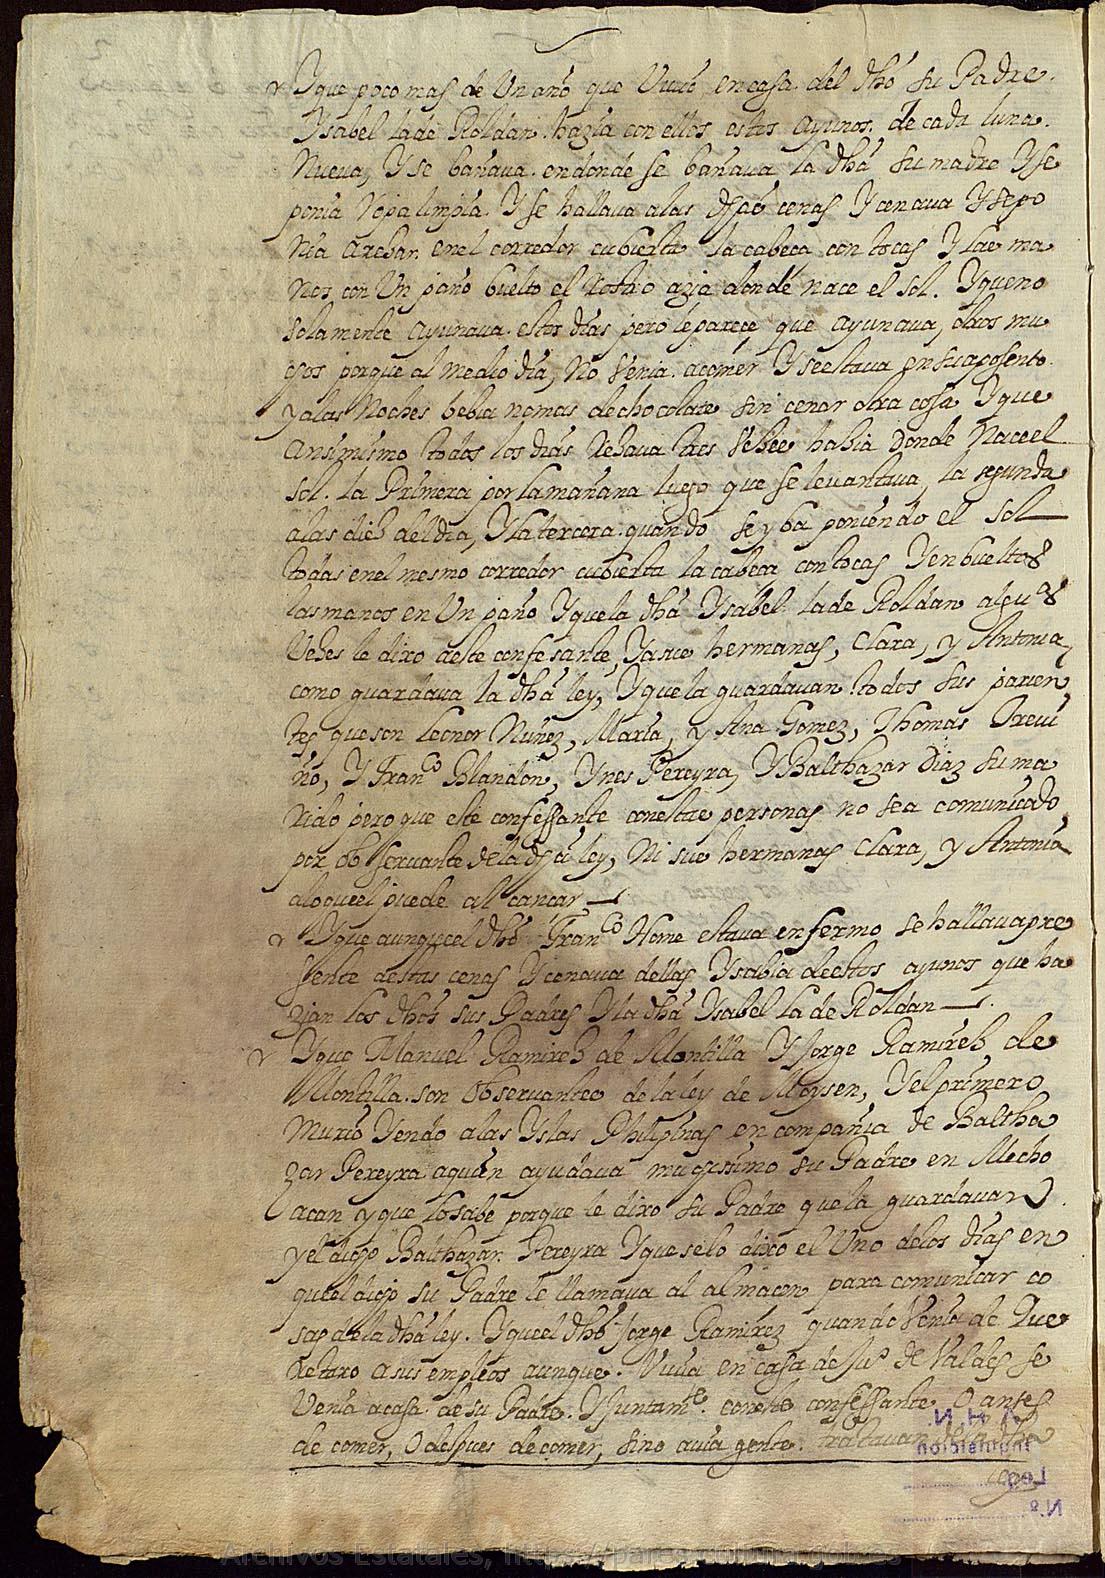 Y que poco mas de Un año que Viuió en casa del dho su Padre
Ysabel la de Roldan hazia con ellos estos ayunos de cada luna
Nueua, Y se bañaua en donde se bañaua la dha su madre Y se
ponia Ropa limpia. Y se hallaua a las dhas cenas Y cenaua Y se po
nia a rezar en el corredor cubierta la cabeça con tocas Y las ma
nos con Un paño buelto el rostro azia donde nace el sol. Y que no
solamente ayunaua estos dias pero le parece que ayunaua otros mu
chos porque al medio dia, No Venia a comer Y se estaua en su aposento
y a las Noches bebia no mas de chocolate sin cenar otra cosa Y que
ansimismo todos los dias Rezaua tres Vezes hazia Donde Nace el
sol. La Primera por la mañana luego que se leuantaua, la segunda
a las diez del dia, Y la tercera quando se yba poniendo el sol
todas en el mesmo corredor cubierta la cabeça con tocas Y enbueltas
las manos en Un paño Y que la dha Ysabel la de Roldan algus
Vezes le dixo a este confesante, Y a sus hermanas, Clara, y Antonia,
como guardaua la dha ley, Y que la guardauan todos sus parien
tes que son Leonor Nuñez, Maria, y Ana Gomez, Thomas Treui
ño, Y Franco Blandon, Ynes Pereyra, Y Balthazar Diaz su ma
rido pero que este confessante con estas personas no se a comunicado
por obseruante de la dha ley, Ni sus hermanas Clara, y Antonia
a lo que el puede alcançar
Y que aunque el dho Franco Home estaua enfermo se hallaua pre
sente a estas cenas Y cenaua dellas Y sabia de estos ayunos que ha
zian los dhos sus Padres Y la dha Ysabel la de Roldan
Y que Manuel Ramirez de Montilla Y Jorge Ramirez de
Montilla son obseruantes de la ley de Moysen, Y el primero
Murio Yendo a las Yslas Philipinas en compañia de Baltha
zar Pereyra a quien ayudaua muchissimo su Padre en Mecho
acan y que lo sabe porque le dixo su Padre que la guardauan
y el dicho Balthazar Pereyra Y que se lo dixo el Uno de los dias en
que el dicho su Padre le llamaua al almacen para comunicar co
sas de la dha ley. Y que el dho Jorge Ramirez quando Venia de Que
retaro a sus empleos aunque Viuia en casa de Juo de Valdes se
Venia a casa de su Padre. Y Juntamte con este confessante O antes
de comer, O despues de comer, sino auia gente trataban de la dha
ley
A. H. N.
Inquisición
Leg.
N.º
Archivos Estatales, https://pares.cultura.gob.es